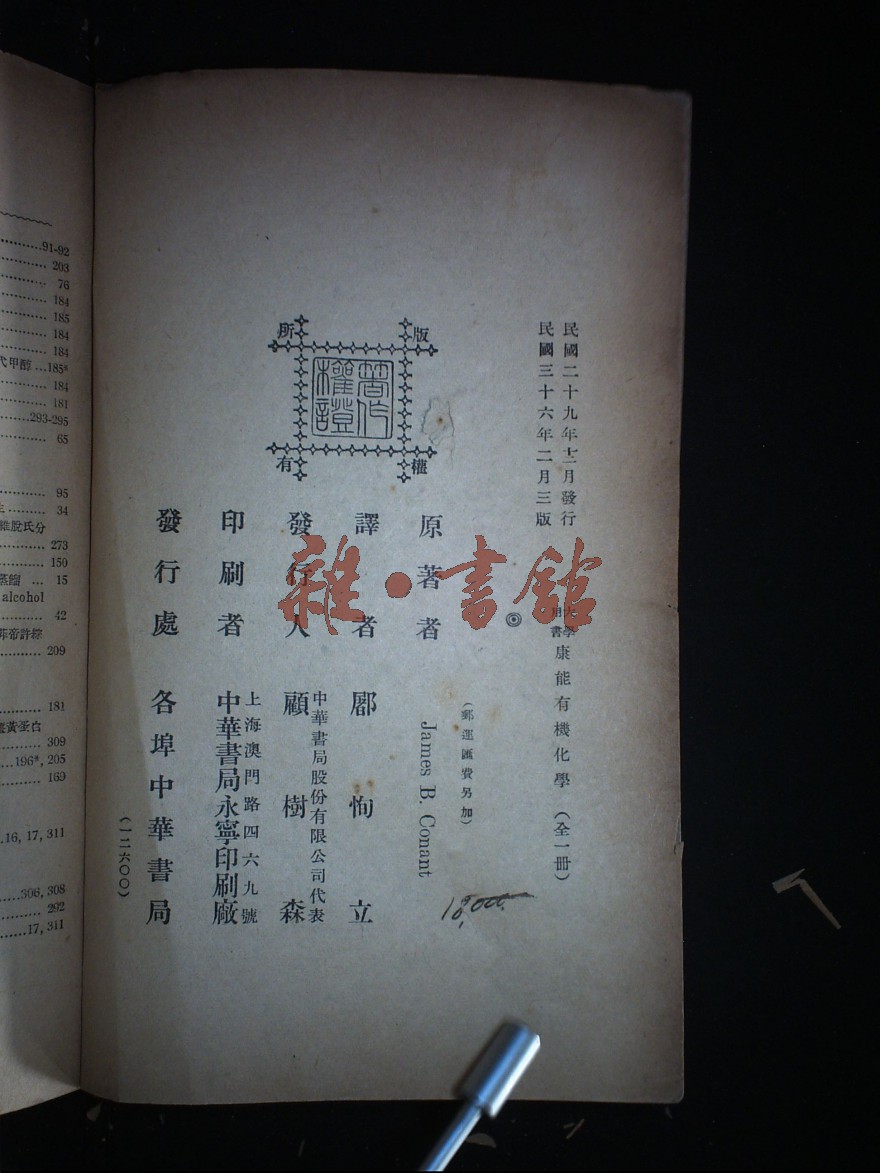 民國二十九年十二月發行
民國三十六年二月三版
大學用書 康能有機化學（全一冊）
◎
（郵運匯費另加）
18,000.
版權所有
著作權證
原著者 James B. Conant
譯者 鄘恂立
發行人 中華書局股份有限公司代表 顧樹森
印刷者 上海澳門路四六九號 中華書局永寧印刷廠
發行處 各埠中華書局
（一二六〇〇）
雜·書館
91-92
203
76
184
185
184
184
代甲醇 ...185*
184
181
293-295
65
95
34
維脫氏分
273
159
蒸餾 ... 15
alcohol
42
209
181
蛋黃蛋白
309
196*, 205
169
16, 17, 311
306, 308
292
17, 311